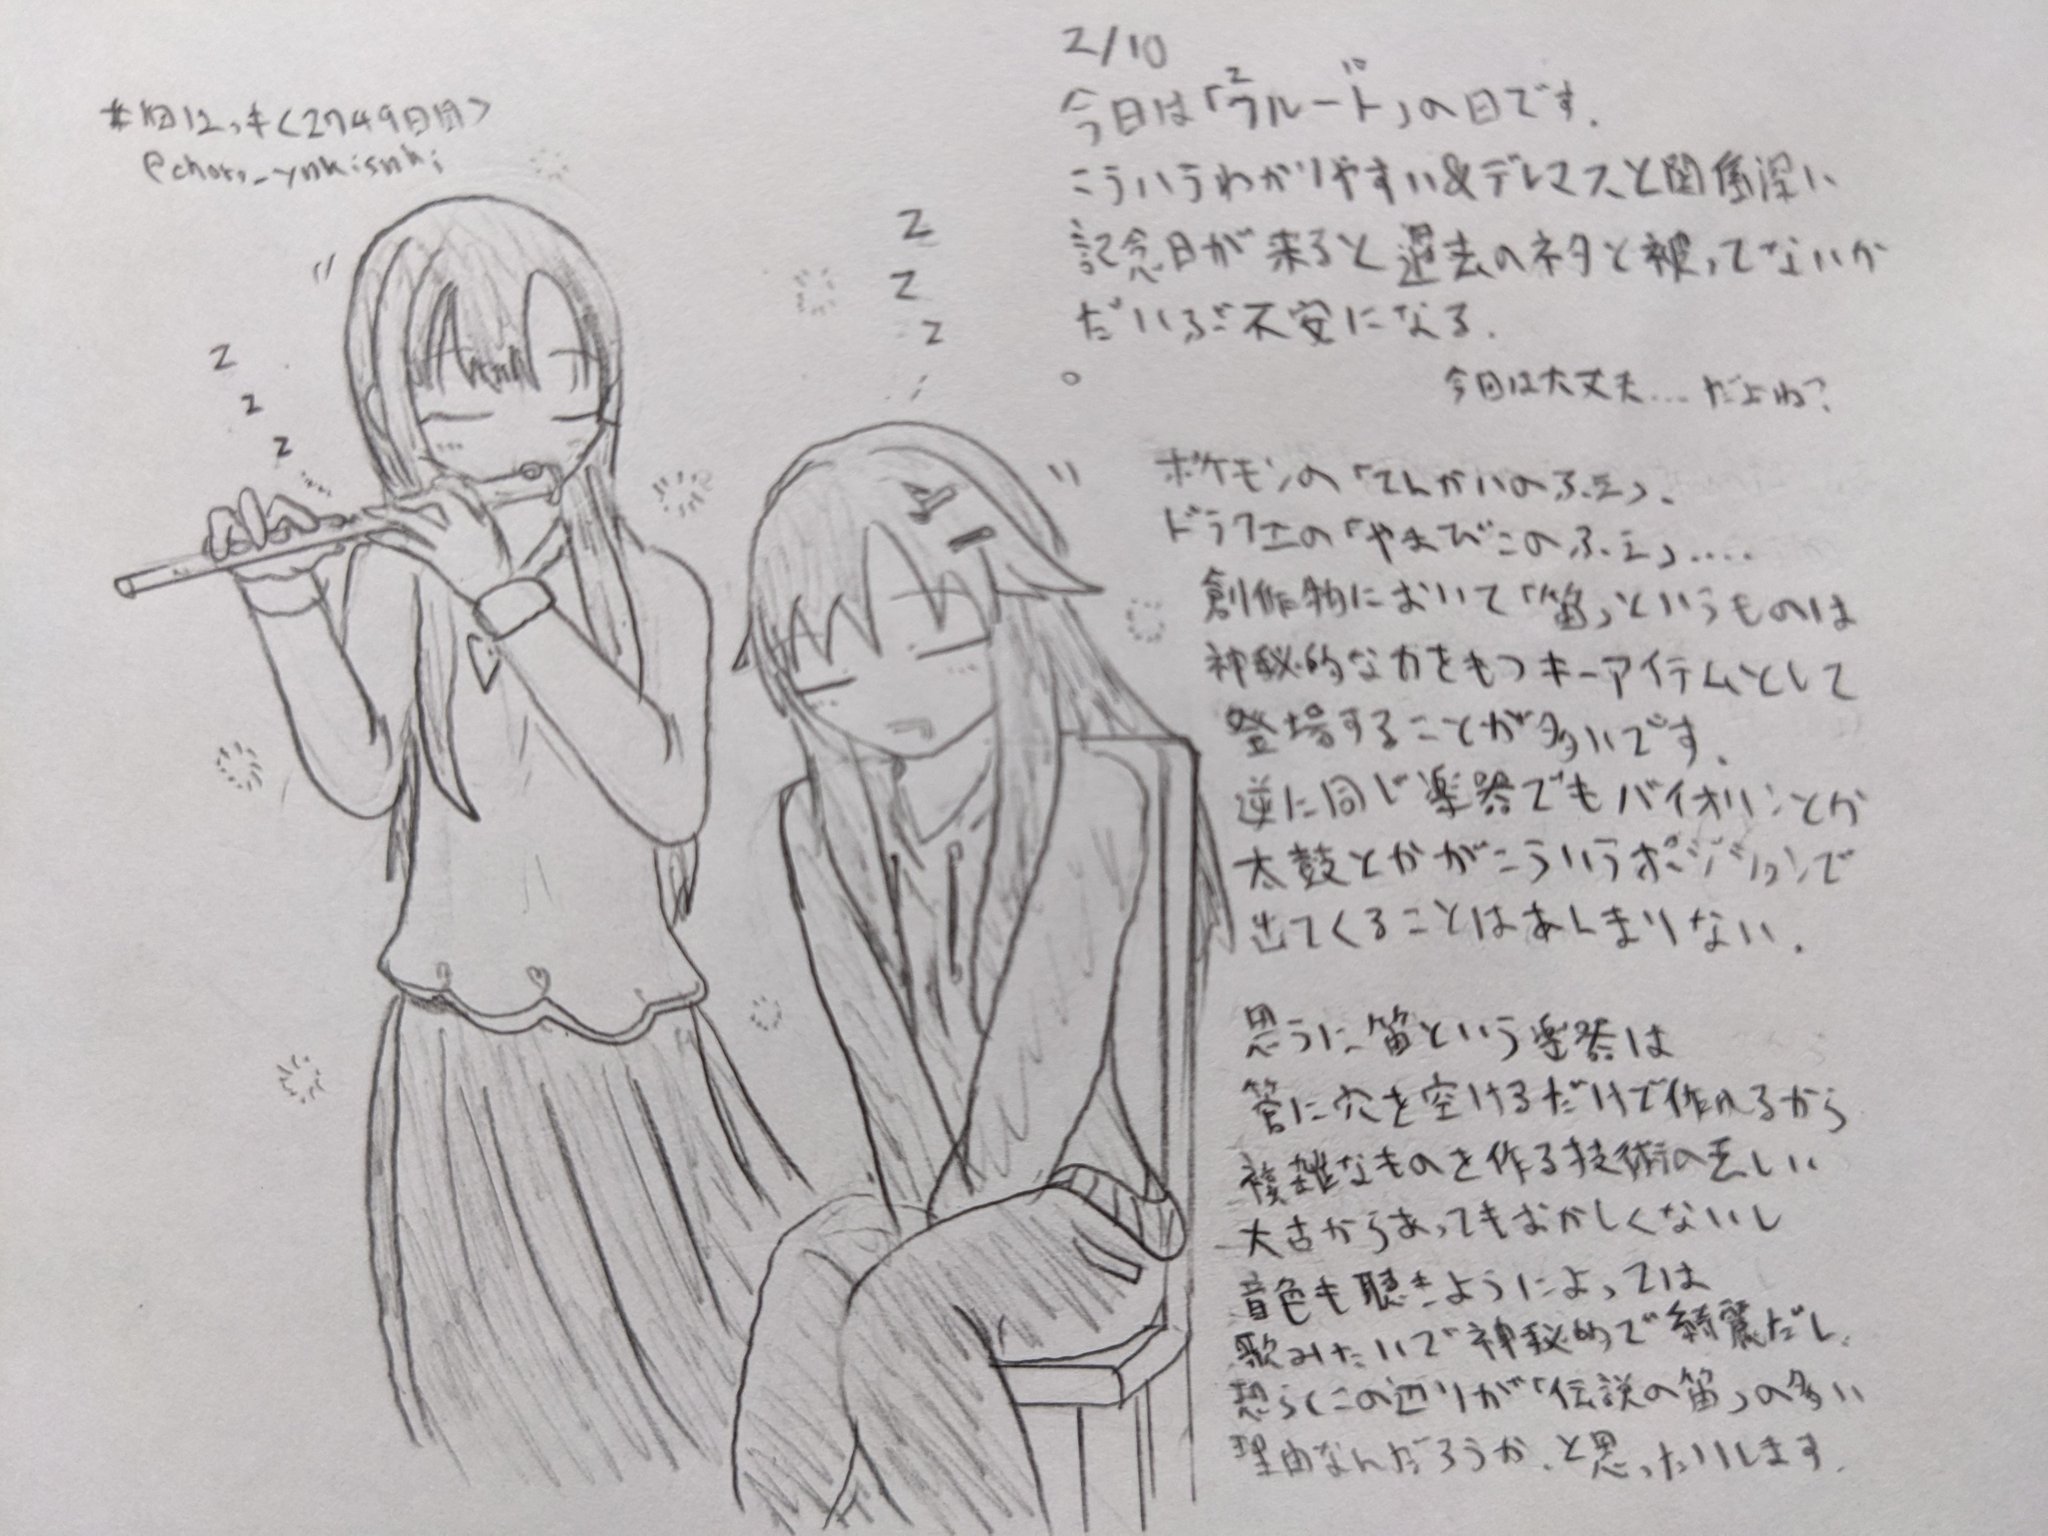 #絵にっき<2749日目>
@choro_ynkisnki
z
z
z
z
z
z
2/10
今日は「フルート」の日です.
2 10
こういうわかりやすい&デレマスと関係深い
記念日が来ると過去のネタと被ってないか
だいぶ不安になる.
今日は大丈夫...だよね?
ポケモンの「てんかいのふえ」、
ドラクエの「やまびこのふえ」....
創作物において「笛」というものは
神秘的な力をもつキーアイテムとして
登場することが多いです.
逆に同じ楽器でもバイオリンとか
太鼓とかがこういうポジションで
出てくることはあんまりない.
思うに笛という楽器は
管に穴を空けるだけで作れるから
複雑なものを作る技術の乏しい
太古からあってもおかしくないし
音色も聴きようによっては
歌みたいで神秘的で綺麗だし、
恐らくこの辺りが「伝説の笛」の多い
理由なんだろうか、と思ったりします.